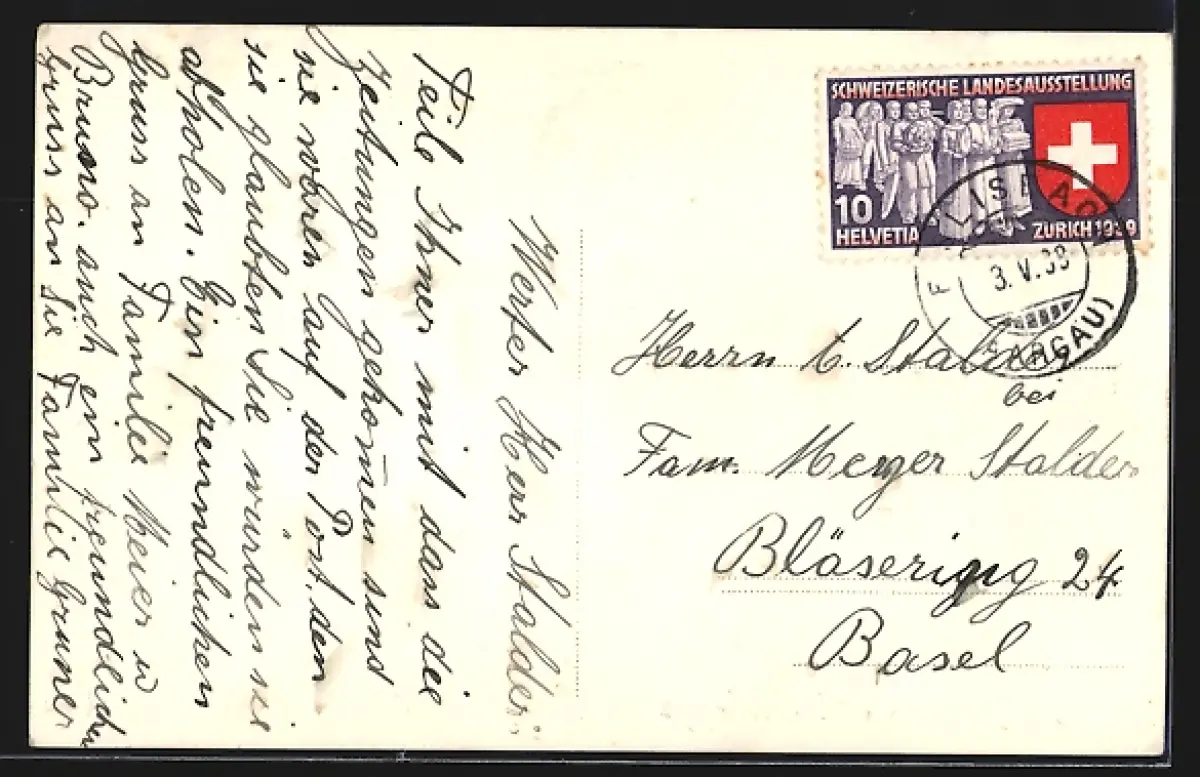 Werter Herr Stalder.
Teile Ihnen mit dass die
Zeitungen gekom̅en sind
sie waren auf der Post. den
sie glaubten Sie würden sie
abholen. Ein freundlichen
Gruss an Familie Meier u̅
Bruno. auch ein freundlichen
Gruss an Sie Familie Gruner
SCHWEIZERISCHE LANDESAUSSTELLUNG
10
HELVETIA
ZÜRICH 1939
FISLISBACH
3.V.39
(AARGAU)
Herrn Stalder
bei
Fam. Meyer Stalder
Bläsering 24
Basel